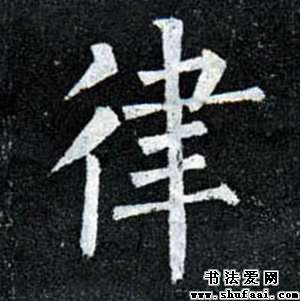 律
书法爱网
www.shufaai.com